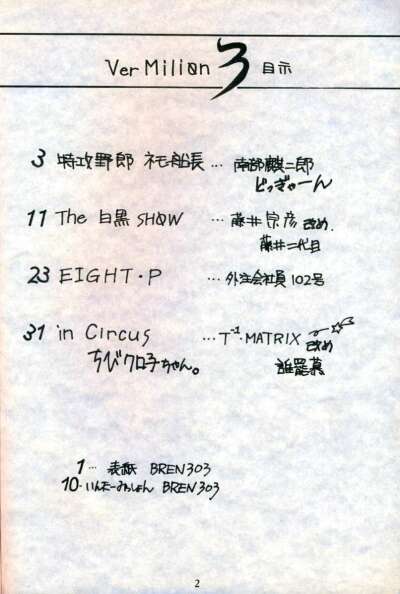 Ver Milion 3 目示
3 特攻野郎 ネモ船長 … 南部麒二郎
どっぎゃーん
11 The 白黒 SHOW … 藤井宗彦 改め.
藤井二代目
23 EIGHT・P … 外注会社員102号
31 in Circus … T⁻¹・MATRIX 改め
ちびクロ子ちゃん。
1 … 表紙 BREN303
10 … いんたーみっしょん BREN303
2